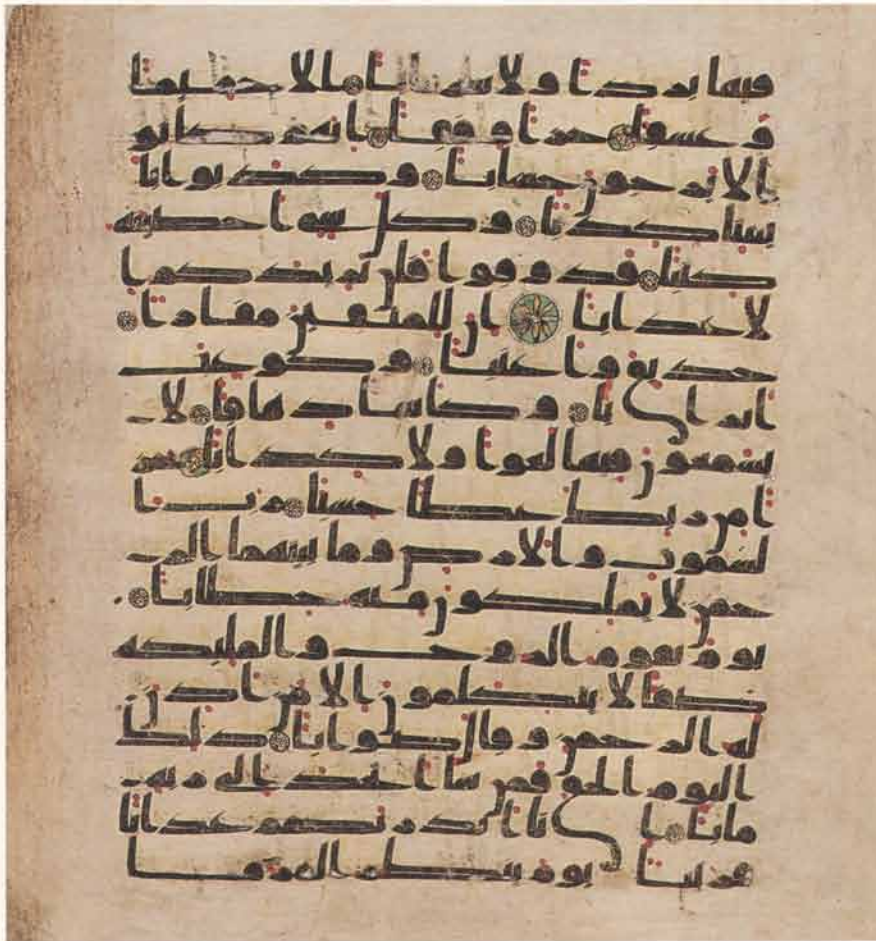 فيها بردا ولا شرابا الا حميما
وغسقا جزا وفقا انهم كانو
ا لا يرجون حسابا وكذبوا با
يتنا كذابا وكل شيء احصينه
كتبا فذوقوا فلن نزيدكم ا
لا عذابا ان للمتقين مفازا
حدائق واعنبا وكوعب
اترابا وكاسا دهاقا لا
يسمعون فيها لغوا ولا كذابا جز
ا من ربك عطا حسبا رب ا
لسموت والارض وما بينهما الر
حمن لا يملكون منه خطابا
يوم يقوم الروح والمليكه
صفا لا يتكلمون الا من اذن
له الرحمن وقال صوابا ذلك
اليوم الحق فمن شا اتخذ الى ربه
مابا انا انذرنكم عذابا
قريبا يوم ينظر المر ما